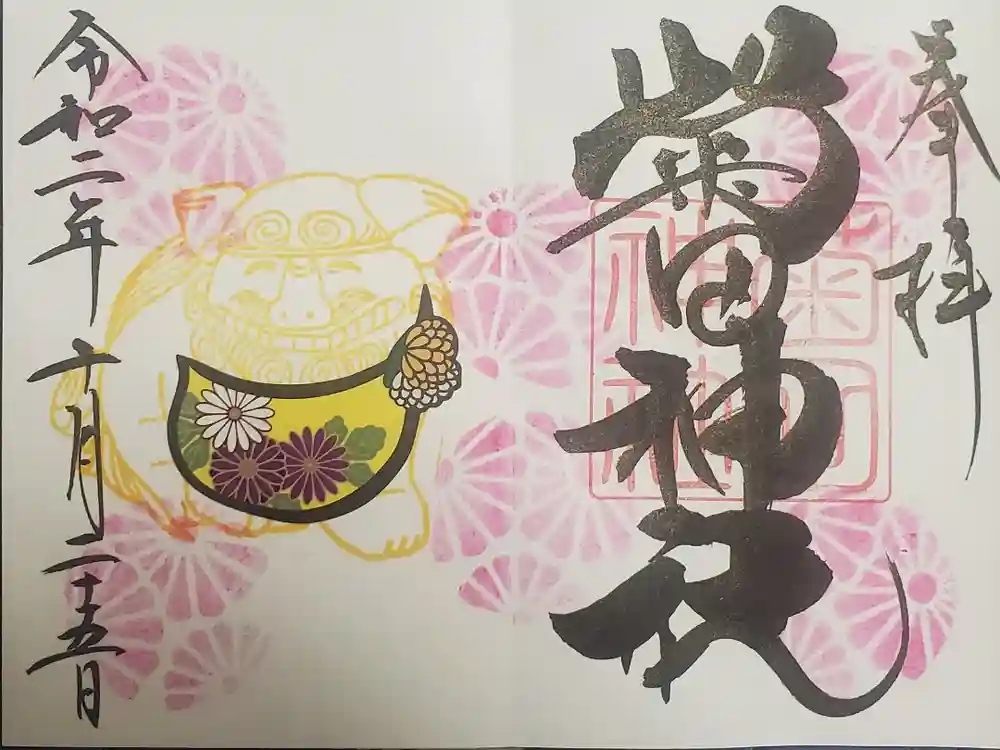 奉拝
菊田神社
菊田
神社
令和二年十月二十五日